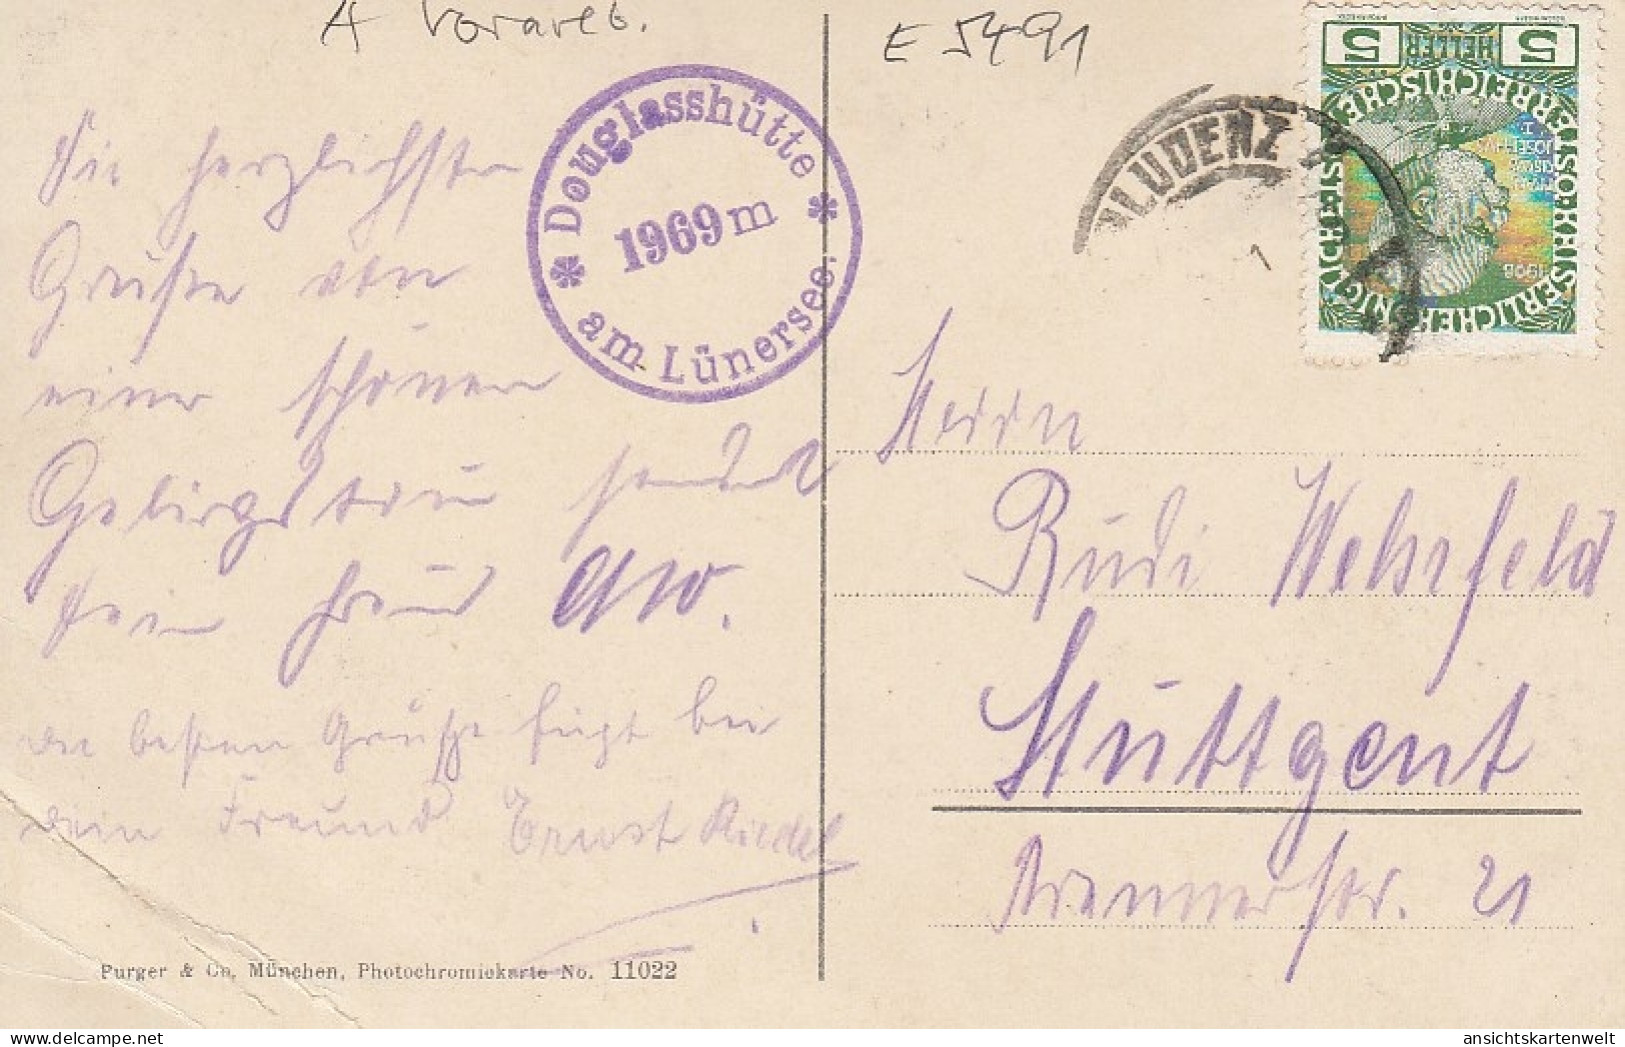 A Vorarlb.
E 5491
Douglasshütte
1969 m
am Lünersee.
BLUDENZ
5 HELLER 5
KAISERLICHE KÖNIGLICHE ÖSTERREICHISCHE POST
1908
Die herzlichsten
Grüße von
einer schönen
Gebirgstour sendet
Dein Freund
die besten Grüße fügt bei
dein Freund Ernst Riedel
Herrn
Rudi Wehrfeld
Stuttgart
str. 21
Purger & Co. München, Photochromiekarte No. 11022
ansichtskartenwelt